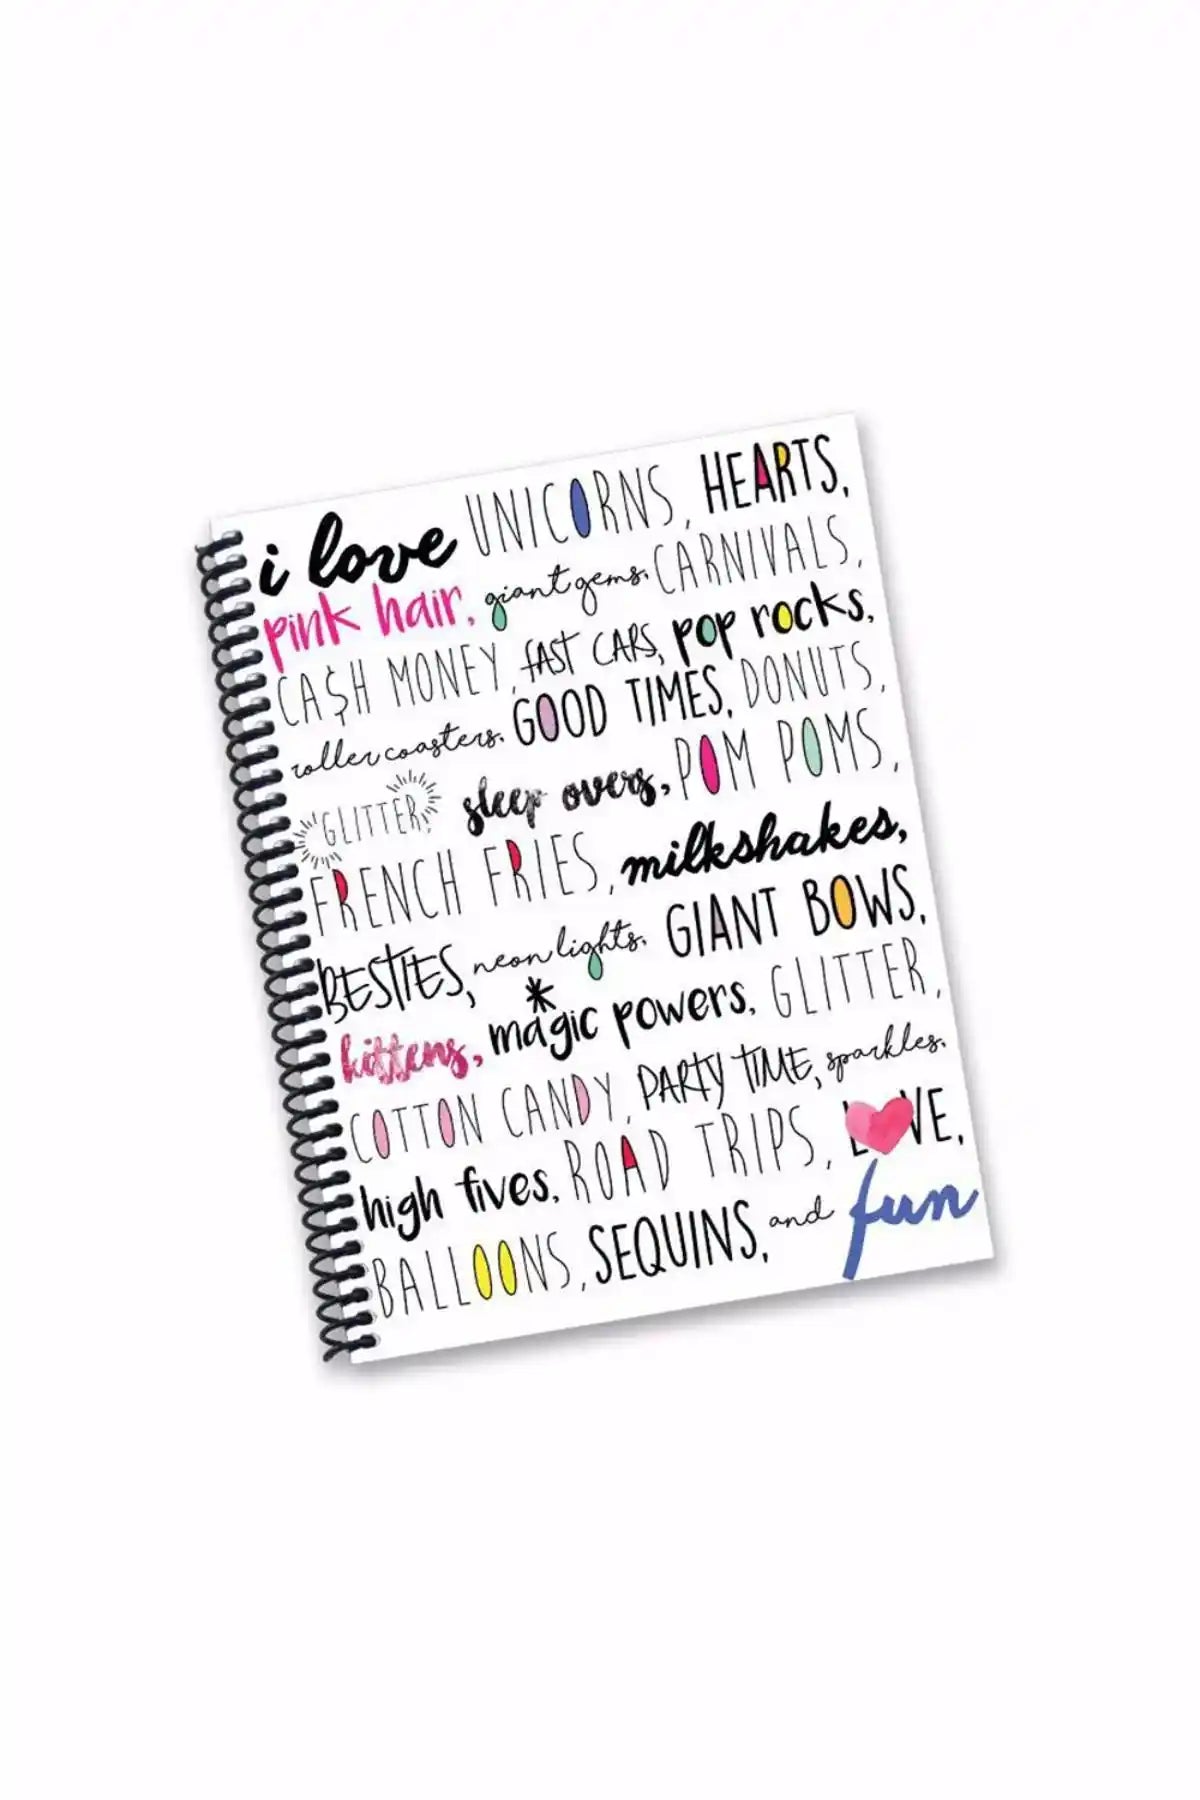 i love UNICORNS, HEARTS,
pink hair, giant gems, CARNIVALS,
CA$H MONEY, FAST CARS, pop rocks,
roller coasters, GOOD TIMES, DONUTS,
GLITTER, sleep overs, POM POMS,
FRENCH FRIES, milkshakes,
BESTIES, neon lights, GIANT BOWS,
kittens, magic powers, GLITTER,
COTTON CANDY, PARTY TIME, sparkles,
high fives, ROAD TRIPS, LOVE,
BALLOONS, SEQUINS, and fun